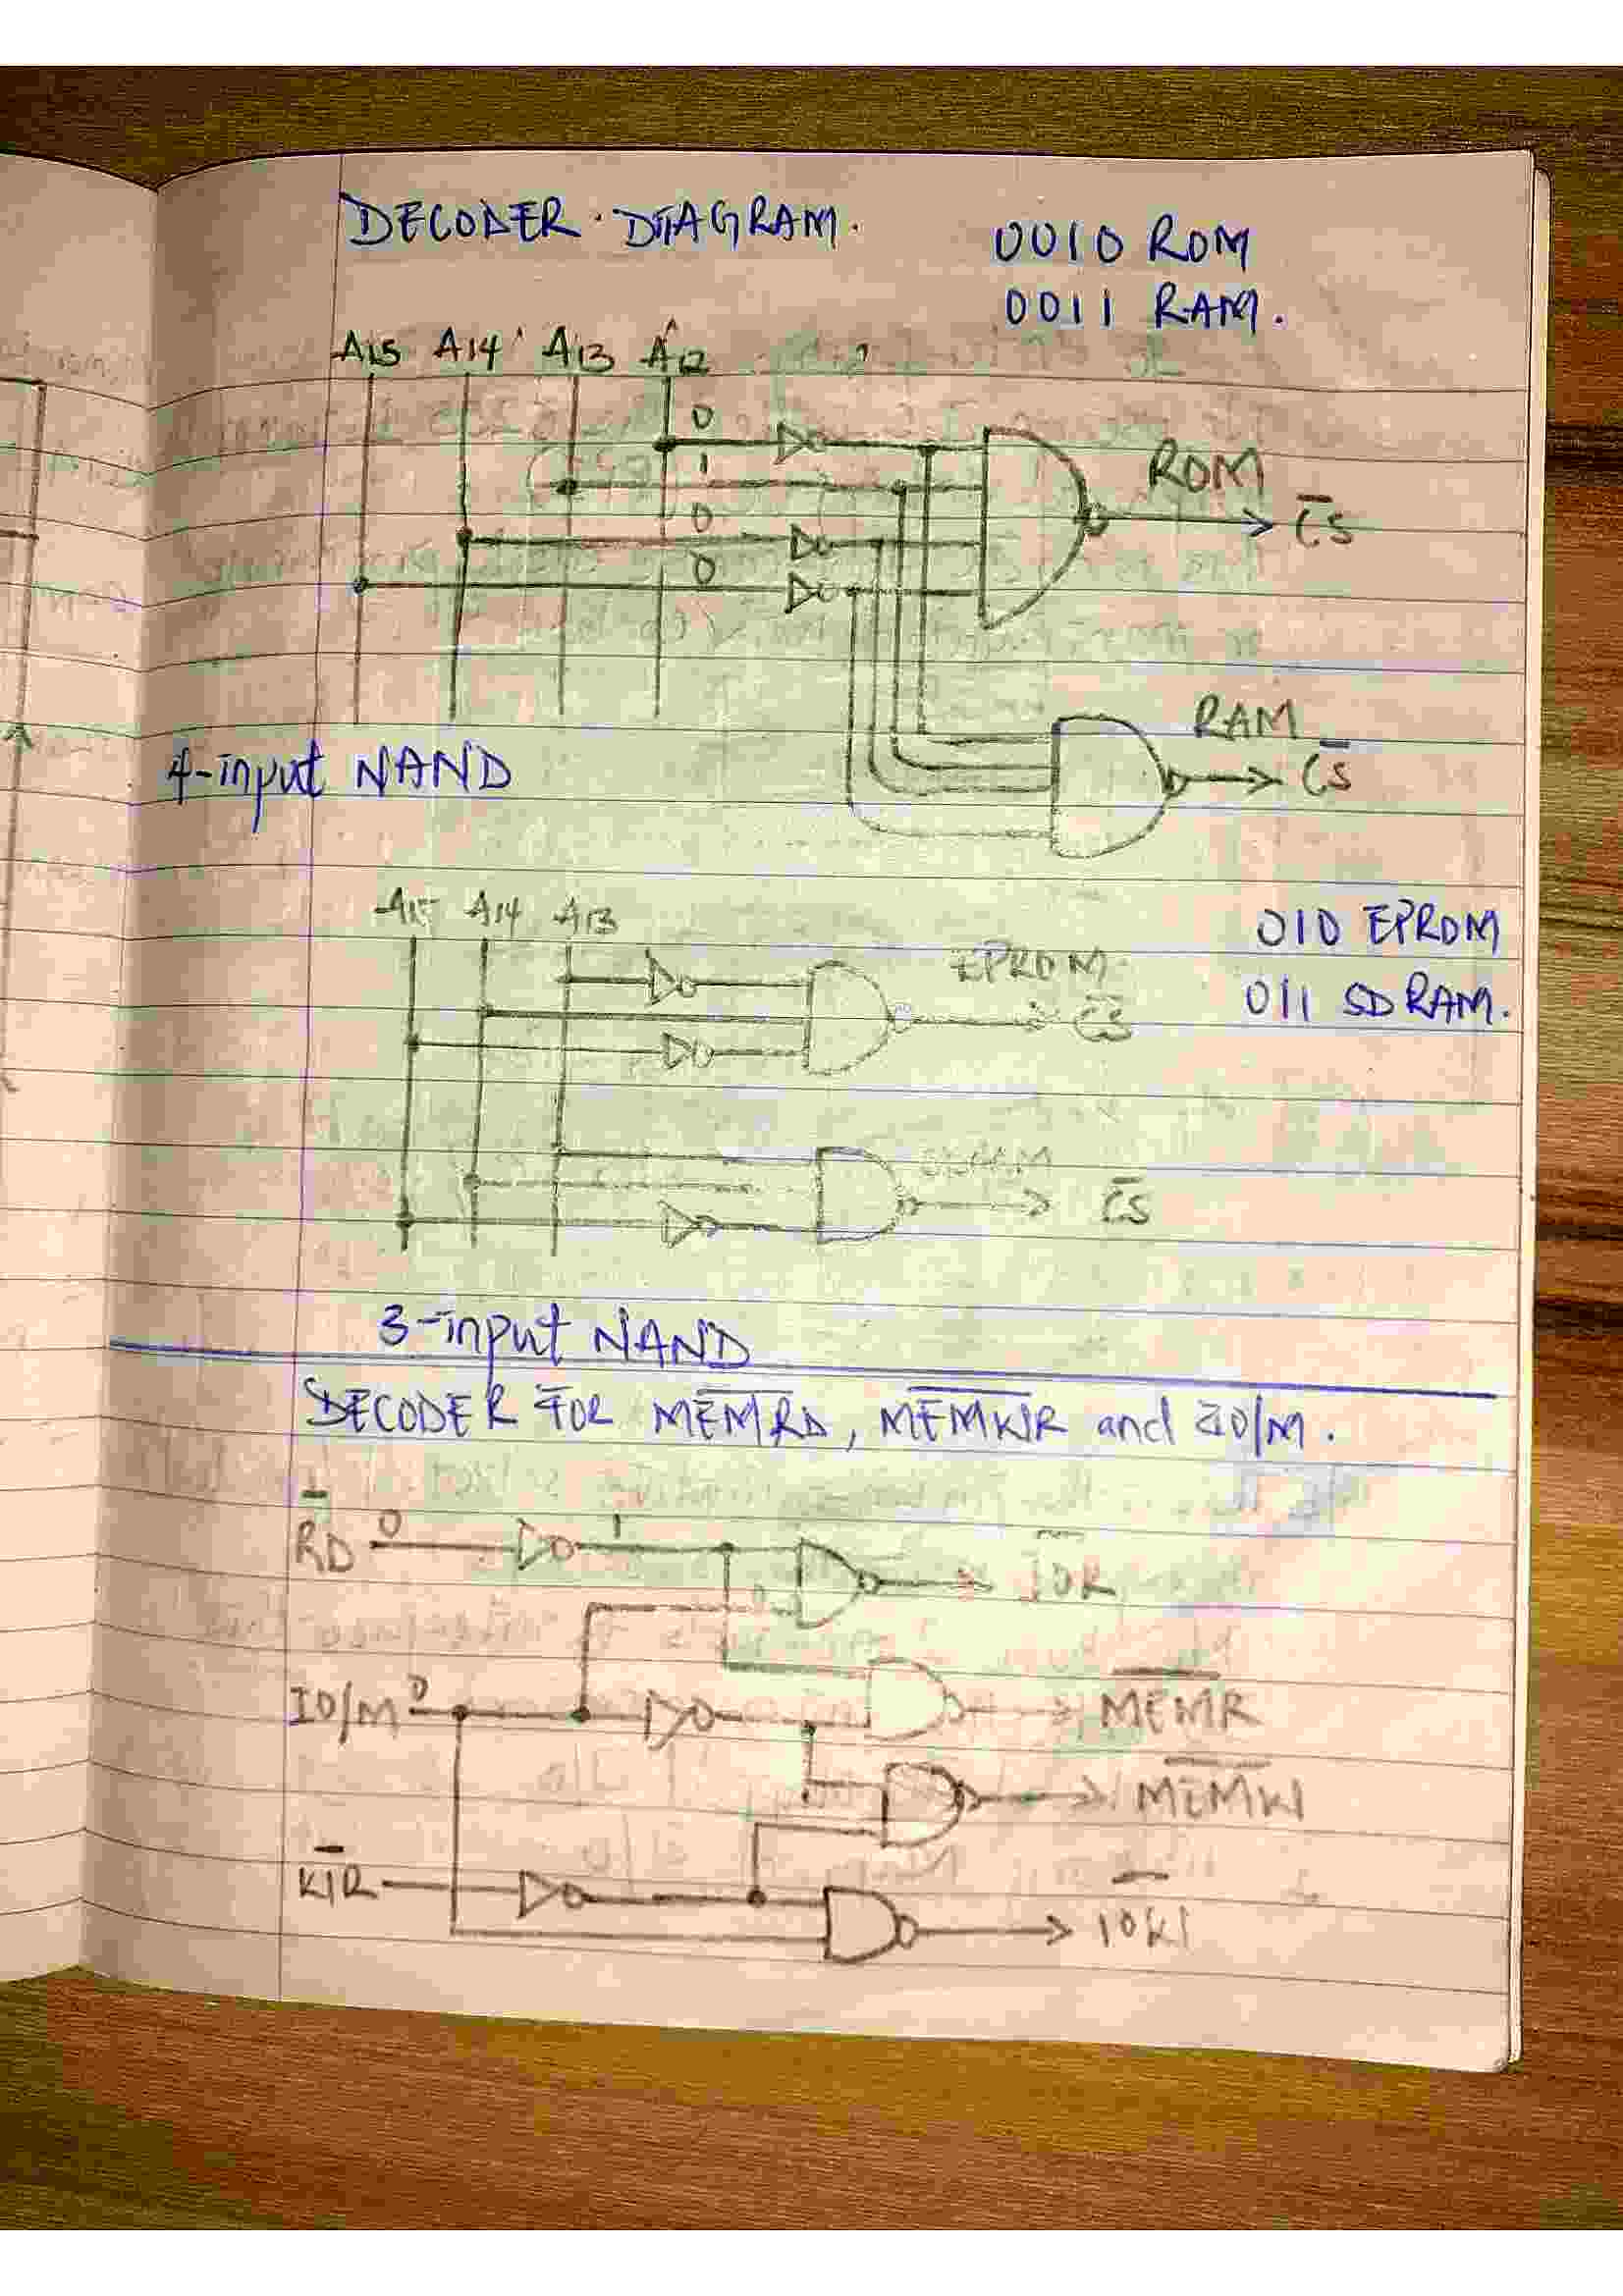 DECODER DIAGRAM.
0010 ROM
0011 RAM.
A15 A14 A13 A12
0
1
0
0
ROM
C̅S̅
RAM
C̅S̅
4-input NAND
A15 A14 A13
010 EPROM
011 SDRAM.
EPROM
C̅S̅
C̅S̅
3-input NAND
DECODER FOR M̅E̅M̅R̅D̅, M̅E̅M̅W̅R̅ and IO/M.
R̅D̅ 0 1
I̅O̅R̅
IO/M 0
M̅E̅M̅R̅
M̅E̅M̅W̅
W̅R̅
I̅O̅W̅